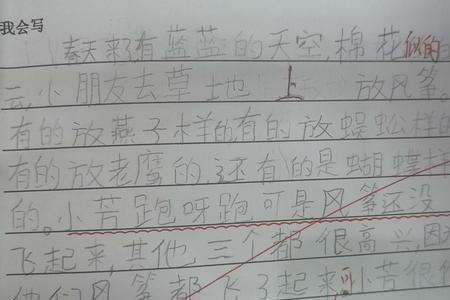 我会写
春天来了有蓝蓝的天空,棉花似的
云,小朋友去草地上放风筝。
有的放燕子样的,有的放蜈蚣样的
有的放老鹰的,还有的是蝴蝶样
的。小芳跑呀跑可是风筝还没
飞起来,其他三个都很高兴,因
他们风筝都飞了起来可小芳很